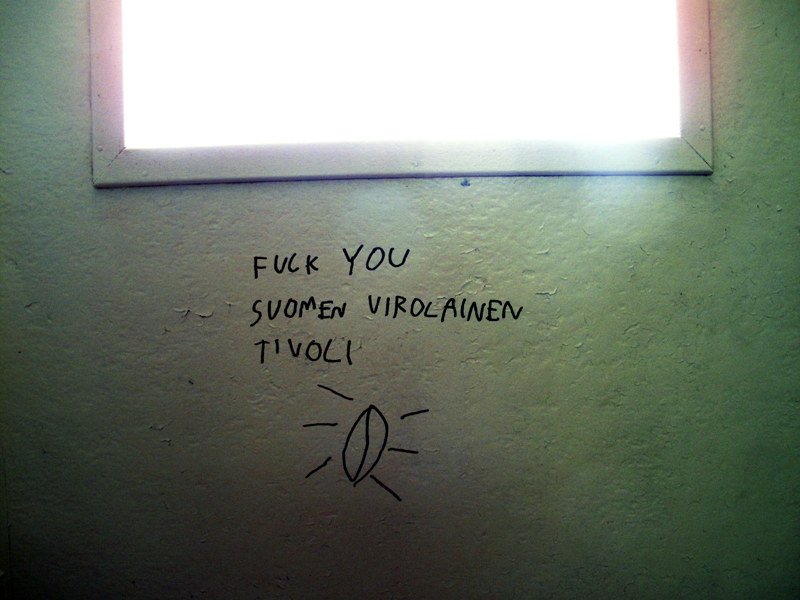 FUCK YOU
SUOMEN VIROLAINEN
TIVOLI